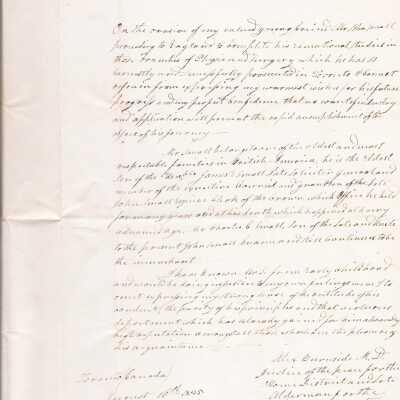 On the occasion of my valued young friend Mr. Small
proceeding to England to complete his studies in
the branches of Physic and Surgery which he has so
earnestly and successfully prosecuted in Toronto I cannot
refrain from expressing my warmest wishes for his future
progress and my perfect confidence that no want of industry
and application will prevent the rapid accomplishment of the
object of his journey —
Mr Small belongs to one of the oldest and most
respectable families in British America, he is the Eldest
Son of the James E Small late Solicitor General and
member of the Executive Council and grandson of the late
John Small Esquire Clerk of the Crown, which Office he held
for many years and at his death which happened at a very
advanced age. Mr Charles C Small, Son of the late and Uncle
to the present John Small became and still continues to be
the incumbent
I have known him from early childhood
and would be doing injustice to my own feelings were I to
omit expressing my strong sense of the rectitude of his
conduct, the purity of his principles and that
deportment which has already gained for him a
high reputation amongst all those who have the pleasure of
his acquaintance
Alex Burnside M.D
Justice of the peace for the
Home District and late
Toronto Canada
Alderman for the
August 16th 1845